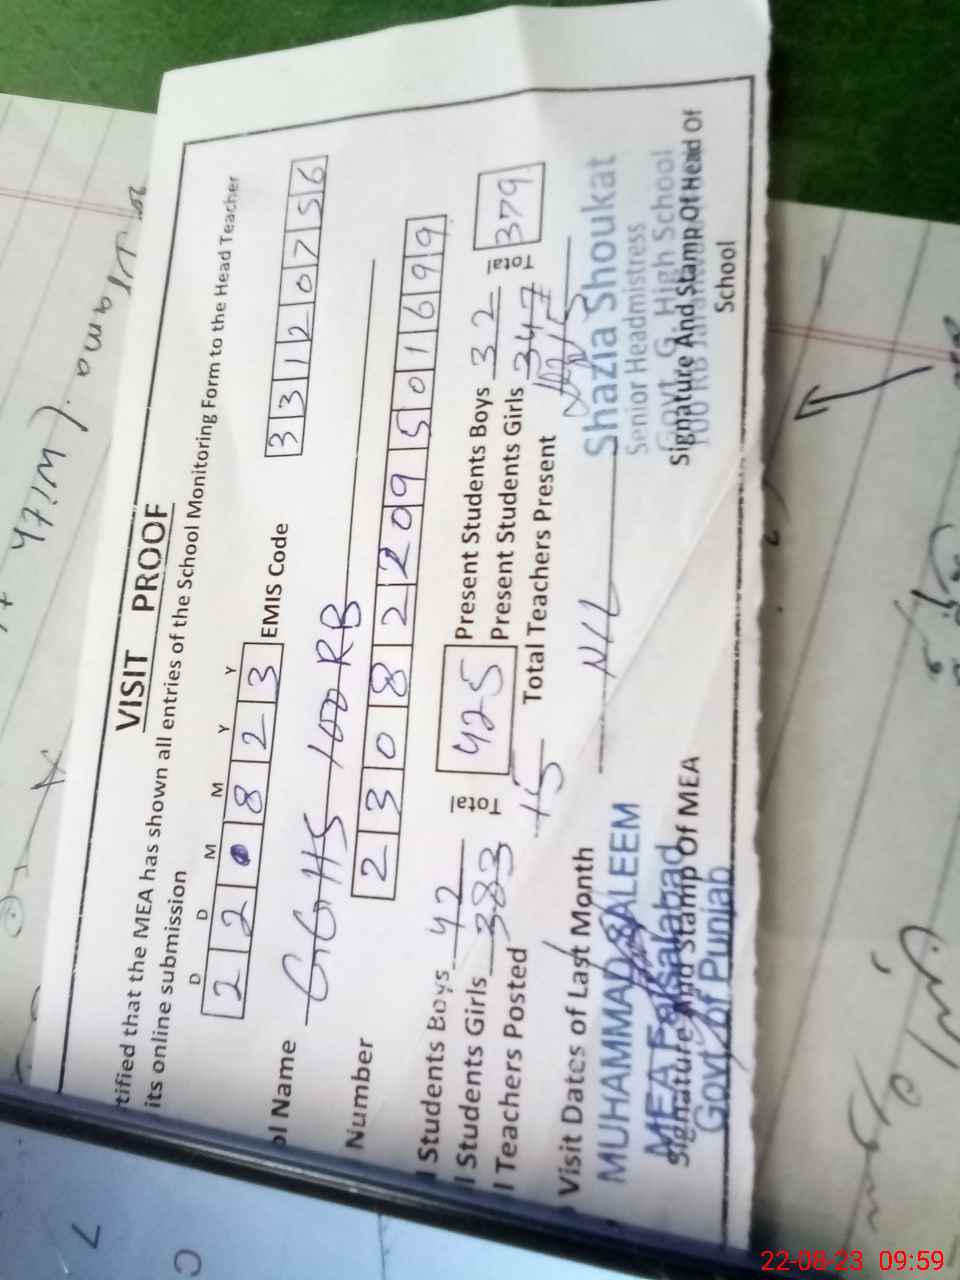 VISIT PROOF
tified that the MEA has shown all entries of the School Monitoring Form to the Head Teacher
its online submission
D D M M Y Y
2 2 0 8 2 3 EMIS Code 3 3 1 2 0 7 5 6
ol Name GGHS 100 RB
Number 2 3 0 8 2 2 0 9 5 0 1 6 9 9
l Students Boys 42 Total 425 Present Students Boys 32 Total 379
l Students Girls 383 Present Students Girls 347
l Teachers Posted 15 Total Teachers Present 15
Visit Dates of Last Month NIL
MUHAMMAD SALEEM
MEA Faisalabad
Govt of Punjab
Signature And Stamp Of MEA
Shazia Shoukat
Senior Headmistress
Govt. G. High School
100 RB
Signature And Stamp Of Head Of
School
47 with
22-08-23 09:59